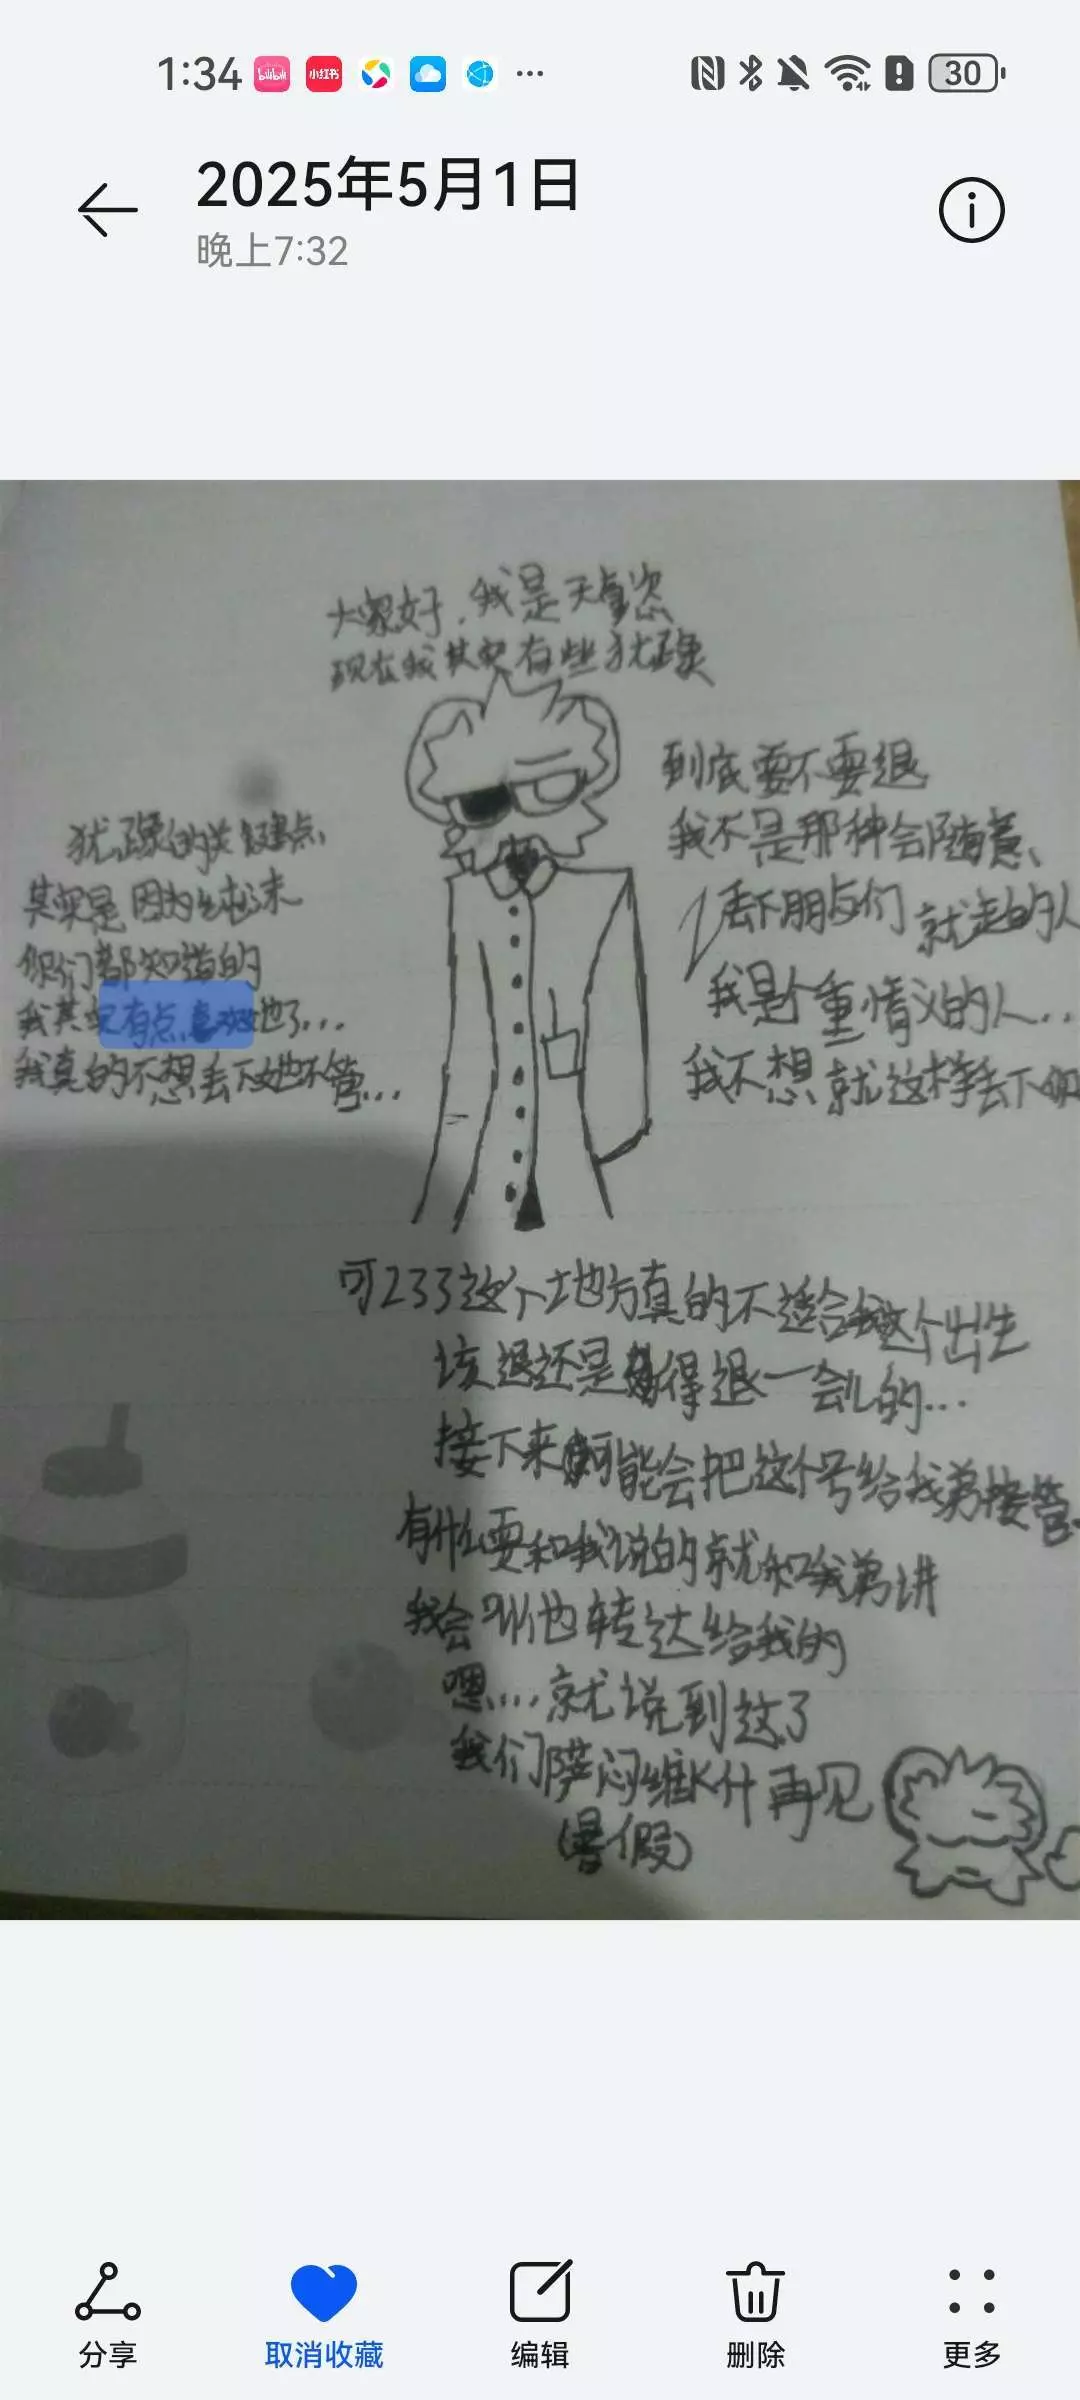 1:34
bilibili
小红书
30
2025年5月1日
晚上7:32
大家好,我是天
现在我其实有些犹豫
到底要不要退
我不是那种会随意
丢下朋友们就走的人
我是个重情义的人..
我不想就这样丢下你
犹豫的关键点
其实是因为
你们都知道的
我其实有点喜欢她了...
我真的不想丢下她不管...
可233这个地方真的不适合我这个出生
该退还是得退一会儿的...
接下来可能会把这个号给我弟接管.
有什么要和我说的就和我弟讲
我会叫他转达给我的
嗯...就说到这了
我们萨闷缩K什再见
(暑假)
分享
取消收藏
编辑
删除
更多